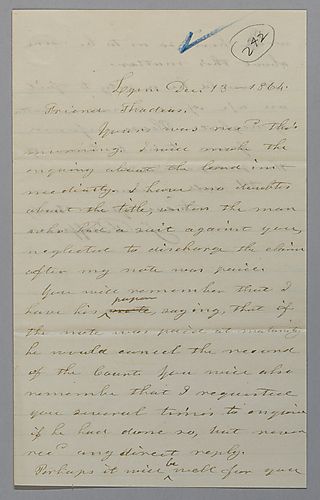 242
Lynn Dec 13 1864.
Friend Thadeus,
Yours was recd this
morning. I will make the
enquiry about the land im
mediately. I have no doubts
about the title, unless the man
who had a suit against you,
neglected to discharge the claim
after my note was paid.
You will remember that I
have his paper saying, that if
the note was paid at maturity
he would cancel the record
of the Court. You will also
remember that I requested
you several times to enquire
if he had done so, but never
recd any direct reply.
Perhaps it will be well for you